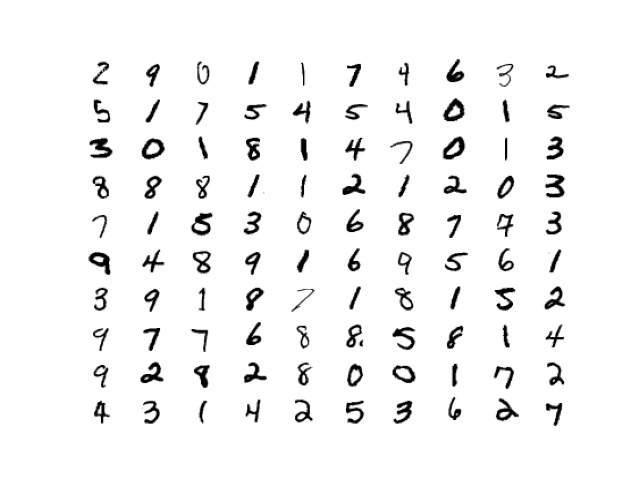 2 9 0 1 1 7 4 6 3 2
5 1 7 5 4 5 4 0 1 5
3 0 1 8 1 4 7 0 1 3
8 8 8 1 1 2 1 2 0 3
7 1 5 3 0 6 8 7 7 3
9 4 8 9 1 6 9 5 6 1
3 9 1 8 7 1 8 1 5 2
9 7 7 6 8 8 5 8 1 4
9 2 8 2 8 0 0 1 7 2
4 3 1 4 2 5 3 6 2 7